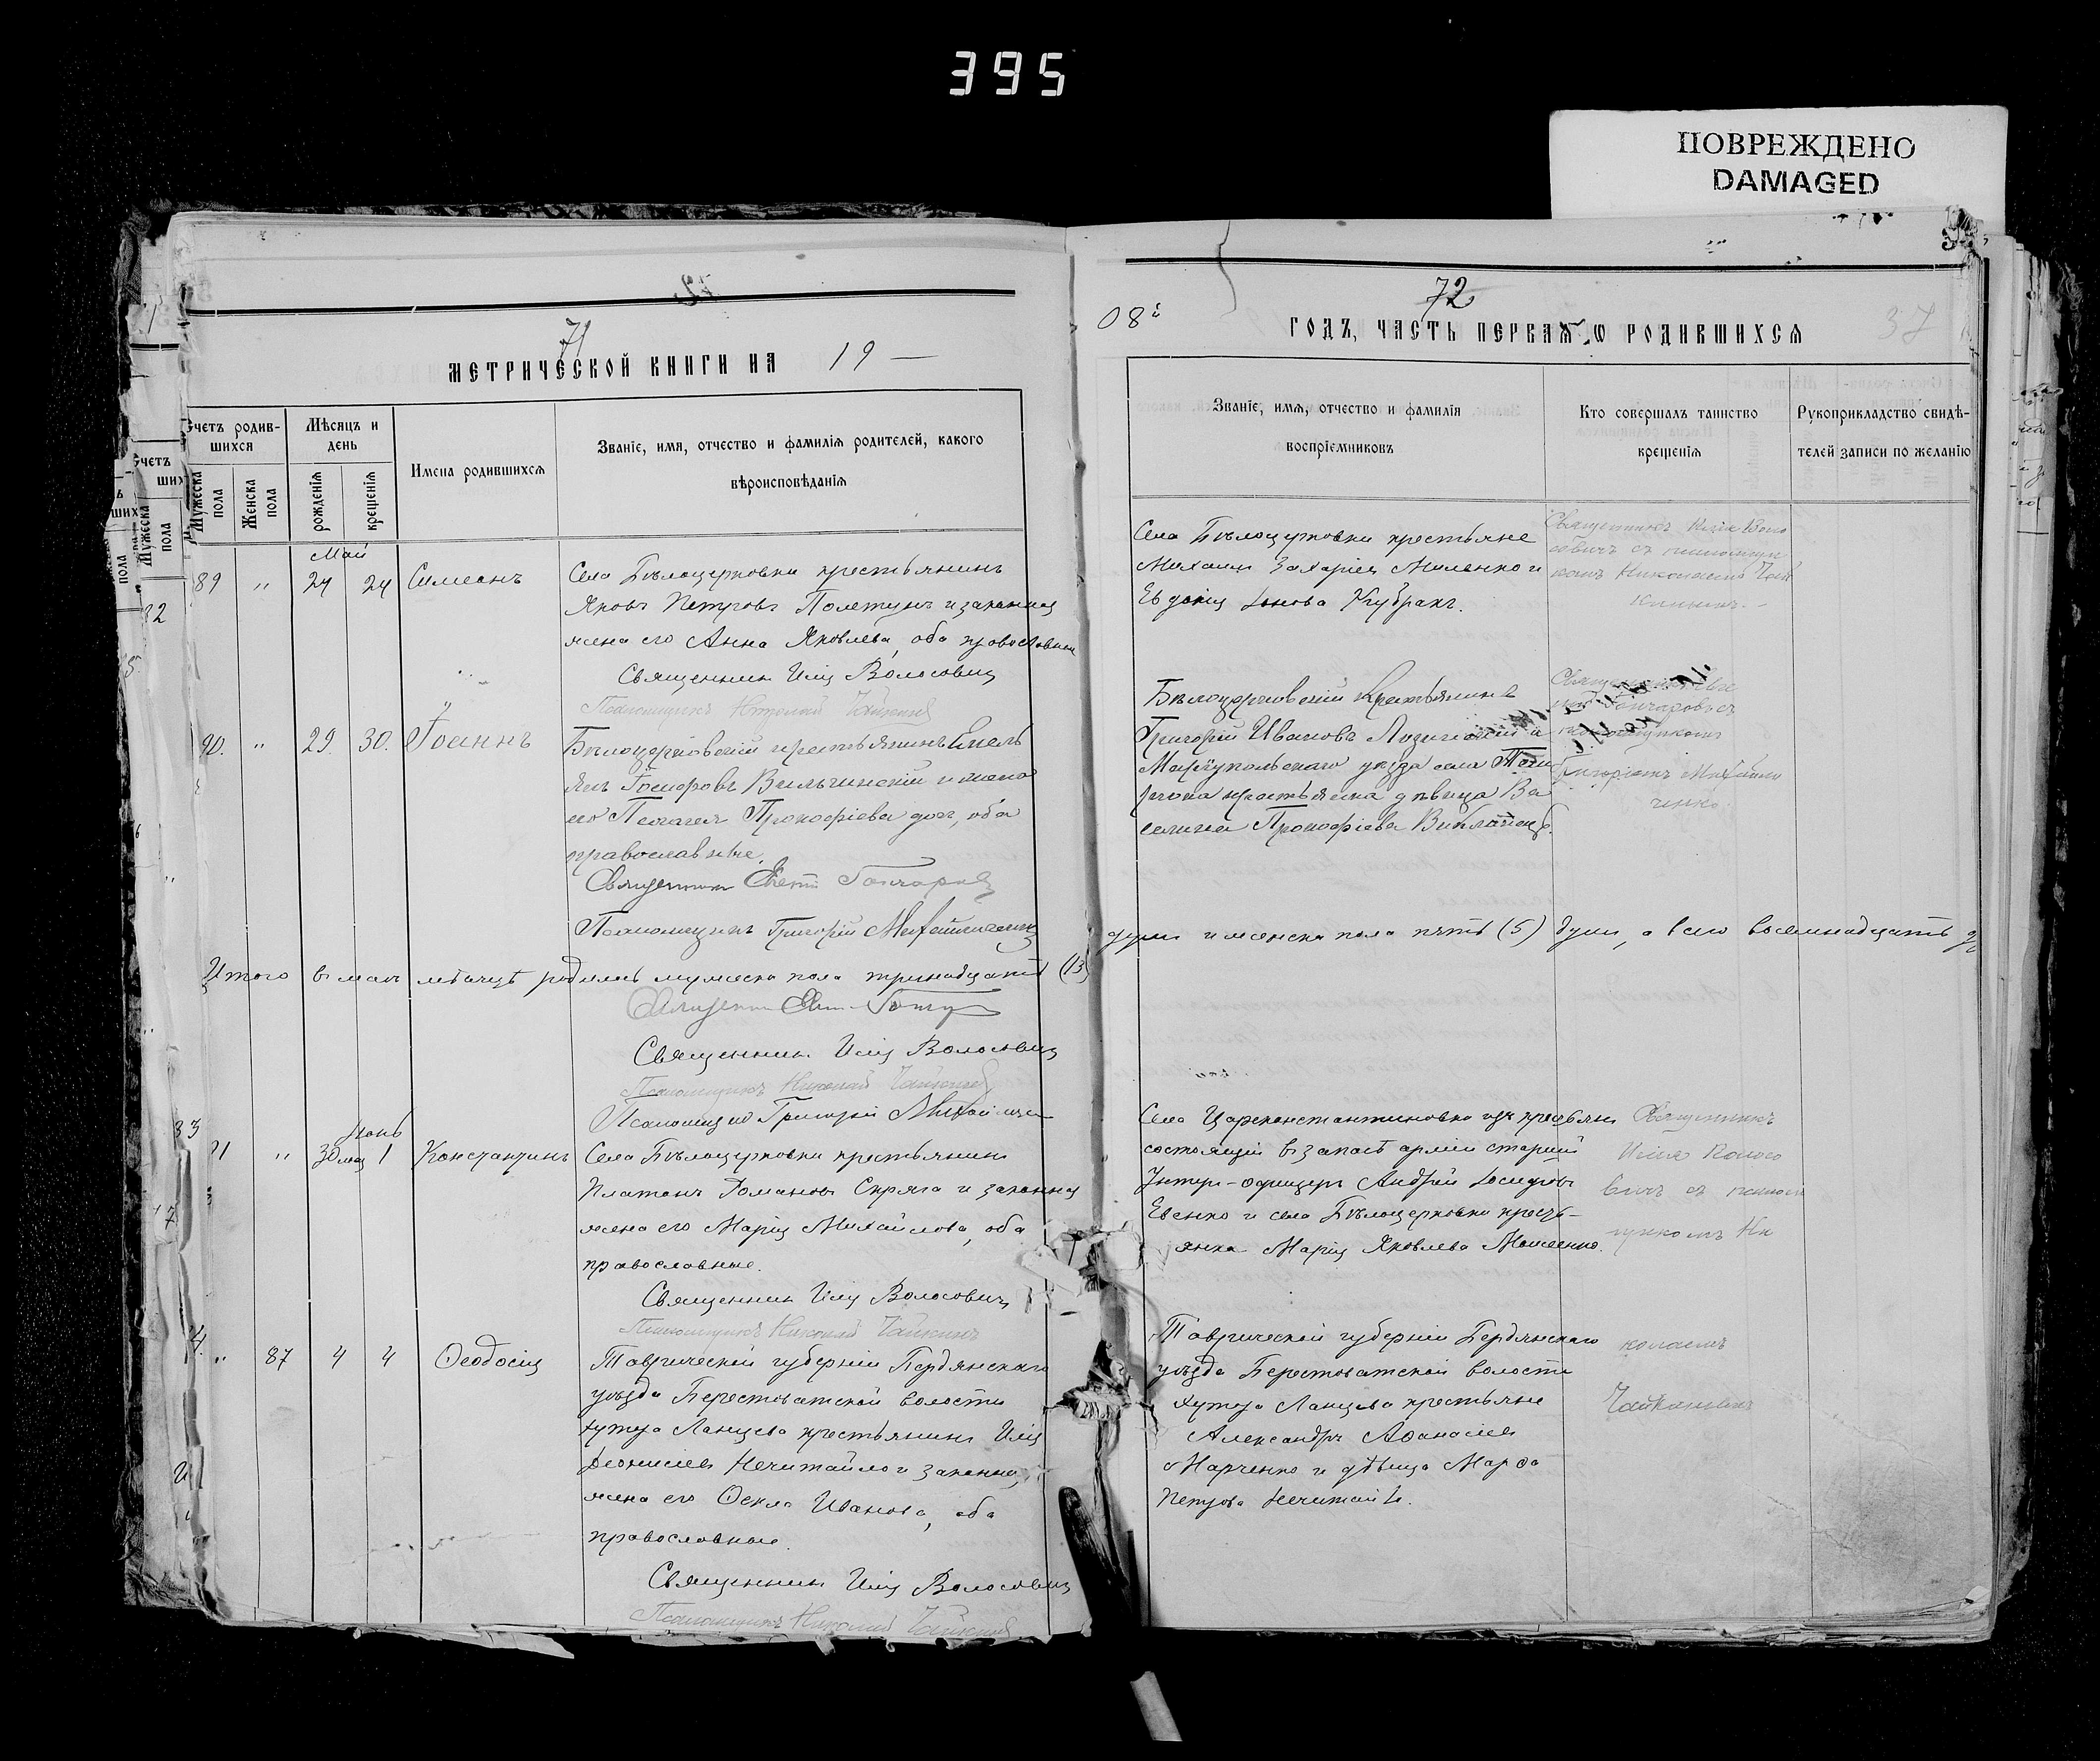 395
ПОВРЕЖДЕНО
DAMAGED
71
МЕТРИЧЕСКОЙ КНИГИ НА 19 —
Счетъ родив-
шихся
Мужеска пола
Женска пола
Мѣсяцъ и
день
рожденія
крещенія
Имена родившихся
Званіе, имя, отчество и фамилія родителей, какого
вѣроисповѣданія
Май
89 " 24 24 Симеонъ
Села Бѣлоцерковки крестьянинъ
Яковъ Петровъ и законная
жена его Анна Яковлева, оба православные
Священникъ Илія Волосовичъ
Псаломщикъ Николай Чайкинъ
90. " 29. 30. Іоаннъ
Бѣлоцерковскій крестьянинъ Емель
янъ Іосифовъ Вильчинскій и жена
его Пелагея Прокофіева дочь, оба
православные.
Священникъ Гончаровъ
Псаломщикъ Григорій
Итого въ маѣ мѣсяцѣ родилось мужеска пола тринадцать (13)
Священникъ
Священникъ Илія Волосовичъ
Псаломщикъ Николай Чайкинъ
Псаломщикъ Григорій
Іюнь
91 " 30 мая 1 Константинъ
Села Бѣлоцерковки крестьянинъ
Платонъ Романовъ Скряга и законная
жена его Марія Михайлова, оба
православные.
Священникъ Илія Волосовичъ
Псаломщикъ Николай Чайкинъ
" 87 4 4 Ѳеодосія
Таврической губерніи Бердянскаго
уѣзда Берестоватской волости
хутора Ланцева крестьянинъ Илія
Леонтіевъ Нечитайло и законная
жена его Ѳекла Иванова, оба
православные.
Священникъ Илія Волосовичъ
Псаломщикъ Николай Чайкинъ
72
08й ГОДЪ, ЧАСТЬ ПЕРВАЯ, Ѡ РОДИВШИХСЯ 37
Званіе, имя, отчество и фамилія
воспріемниковъ
Кто совершалъ таинство
крещенія
Рукоприкладство свидѣ-
телей записи по желанію
Села Бѣлоцерковки крестьяне
Михаилъ Захаріевъ Миленко и
Евдокія Іонова Кубракъ.
Священникъ Илія Воло
совичъ съ псаломщи
комъ Николаемъ Чай
кинымъ.
Бѣлоцерковскій крестьянинъ
Григорій Ивановъ и
Маріупольскаго уѣзда села
крестьянка дѣвица Ва
Прокофіева
Гончаровъ съ
псаломщикомъ
Григоріемъ
душъ и женска пола пять (5) душъ, а всего восемнадцать
Села Цареконстантиновки изъ крестьянъ
состоящій въ запасѣ арміи старшій
Унтеръ-офицеръ Андрей Іосифовъ
Евенко и села Бѣлоцерковки кресть-
янка Марія Яковлева
Священникъ
Илія Волосо
вичъ съ псалом
щикомъ Ни
Таврической губерніи Бердянскаго
уѣзда Берестоватской волости
хутора Ланцева крестьяне
Александръ Аѳанасіевъ
Марченко и дѣвица Марѳа
Петрова Нечитайло.
колаемъ
Чайкинымъ